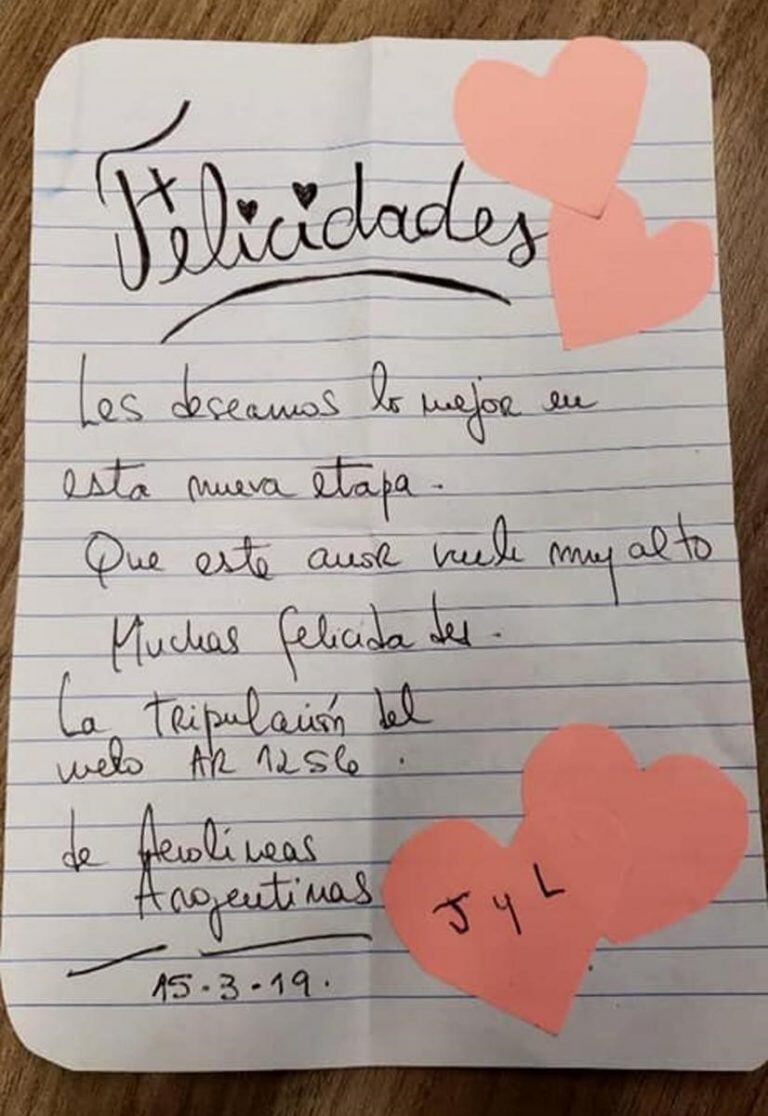 Felicidades
Les deseamos lo mejor en
esta nueva etapa.
Que este amor vuele muy alto
Muchas felicidades.
La tripulación del
vuelo AR 1256.
de Aerolineas
Argentinas
15.3.19.
J y L